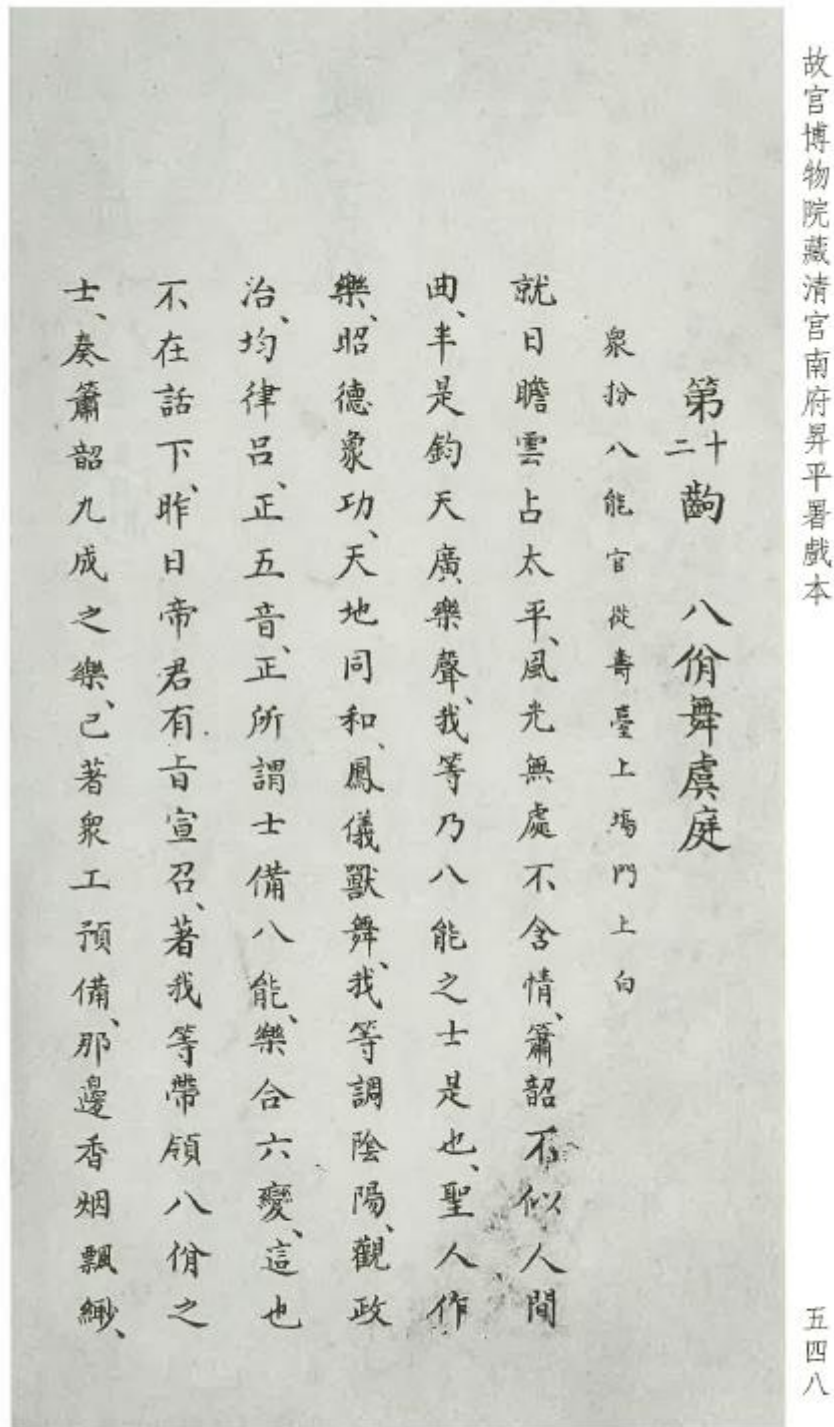 故宫博物院藏清宫南府昇平署戲本
第十二齣　八佾舞虞庭
衆扮八能官從壽臺上塲門上白
就日瞻雲占太平、風光無處不含情、簫韶不似人間
曲、半是鈞天廣樂聲、我等乃八能之士是也、聖人作
樂、昭德象功、天地同和、鳳儀獸舞、我等調陰陽、觀政
治、均律呂、正五音、正所謂士備八能、樂合六變、這也
不在話下、昨日帝君有旨宣召、著我等帶領八佾之
士、奏簫韶九成之樂、已著衆工預備、那邊香烟飄緲、
五四八